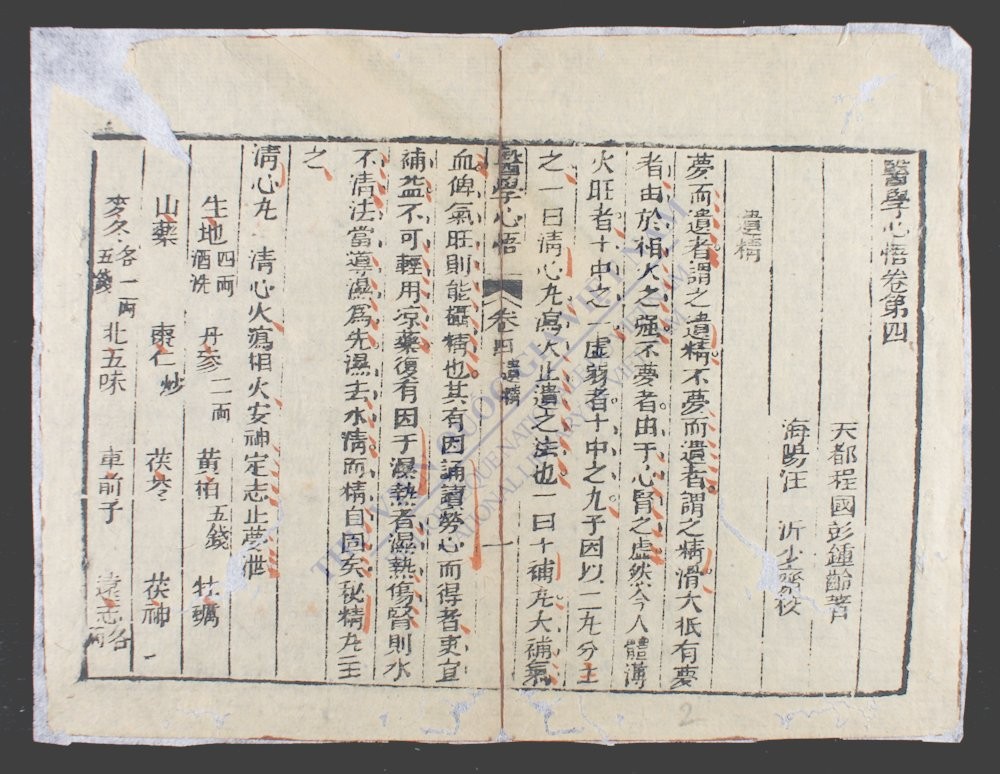 醫學心悟卷第四
天都程國彭鍾齡著
海陽汪 沂少齋校
遺精
夢而遺者謂之遺精不夢而遺者謂之精滑大抵有夢
者由於相火之强不夢者由于心腎之虚然今人體薄
火旺者十中之一虚弱者十中之九予因以二九分主
之一曰清心丸瀉火止遺之法也一曰十補丸大補氣
醫學心悟 卷四 遺精 一
血俾氣旺則能攝精也其有因誦讀勞心而得者更宜
補益不可輕用凉藥復有因于濕熱者濕熱傷腎則水
不清法當導濕爲先濕去水清而精自固矣秘精丸主
之
清心丸 清心火瀉相火安神定志止夢泄
生地四兩酒洗 丹參二兩 黄柏五錢 牡蠣
山藥 棗仁炒 茯苓 茯神
麥冬各一兩五錢 北五味 車前子 遠志各
2